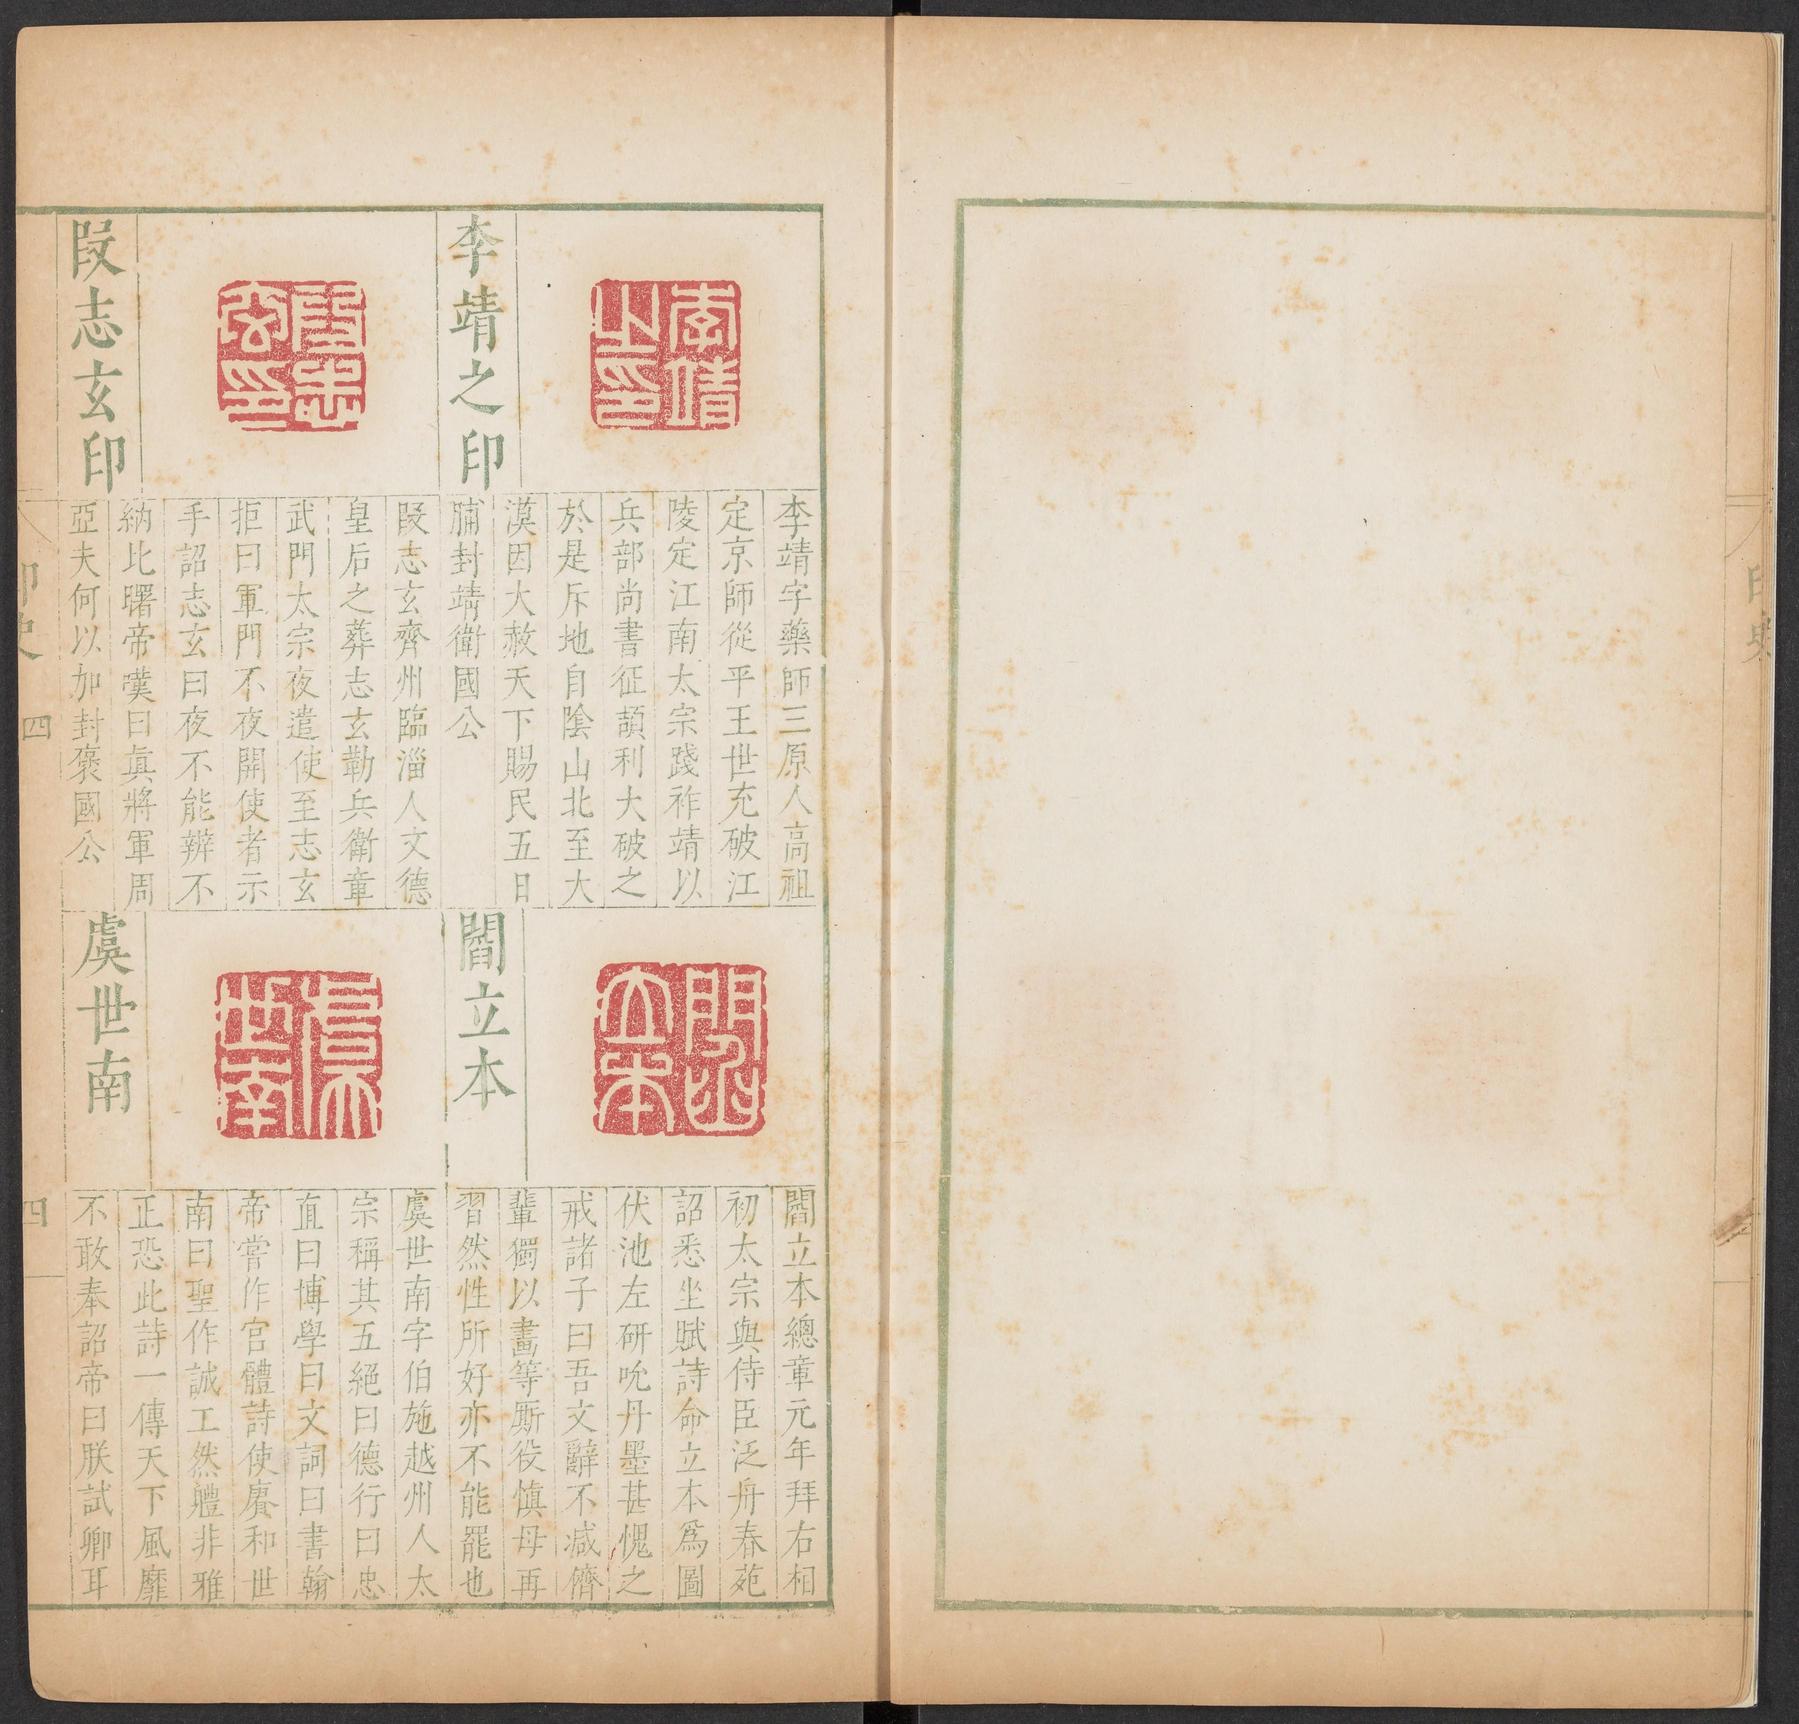 李靖之印
李靖字藥師三原人高祖
定京師從平王世充破江
陵定江南太宗踐祚靖以
兵部尚書征頡利大破之
於是斥地自陰山北至大
漠因大赦天下賜民五日
酺封靖衛國公
段志玄印
段志玄齊州臨淄人文德
皇后之葬志玄勒兵衛章
武門太宗夜遣使至志玄
拒曰軍門不夜開使者示
手詔志玄曰夜不能辨不
納比曙帝嘆曰眞將軍周
亞夫何以加封褒國公
閻立本
閻立本總章元年拜右相
初太宗與侍臣泛舟春苑
詔悉坐賦詩命立本爲圖
伏池左研吮丹墨甚愧之
戒諸子曰吾文辭不減儕
輩獨以畫等厮役慎毋再
習然性所好亦不能罷也
虞世南
虞世南字伯施越州人太
宗稱其五絕曰德行曰忠
直曰博學曰文詞曰書翰
帝嘗作宮體詩使賡和世
南曰聖作誠工然軆非雅
正恐此詩一傳天下風靡
不敢奉詔帝曰朕試卿耳
印史
四
四